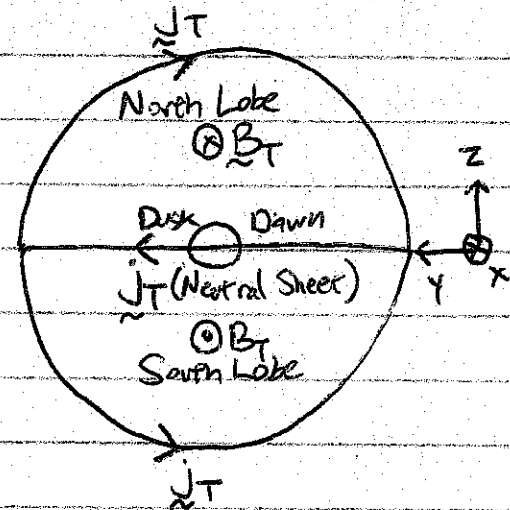 j T
North Lobe
B T
Z
Dusk Dawn
j T (Neutral Sheet) Y X
B T
South Lobe
j T